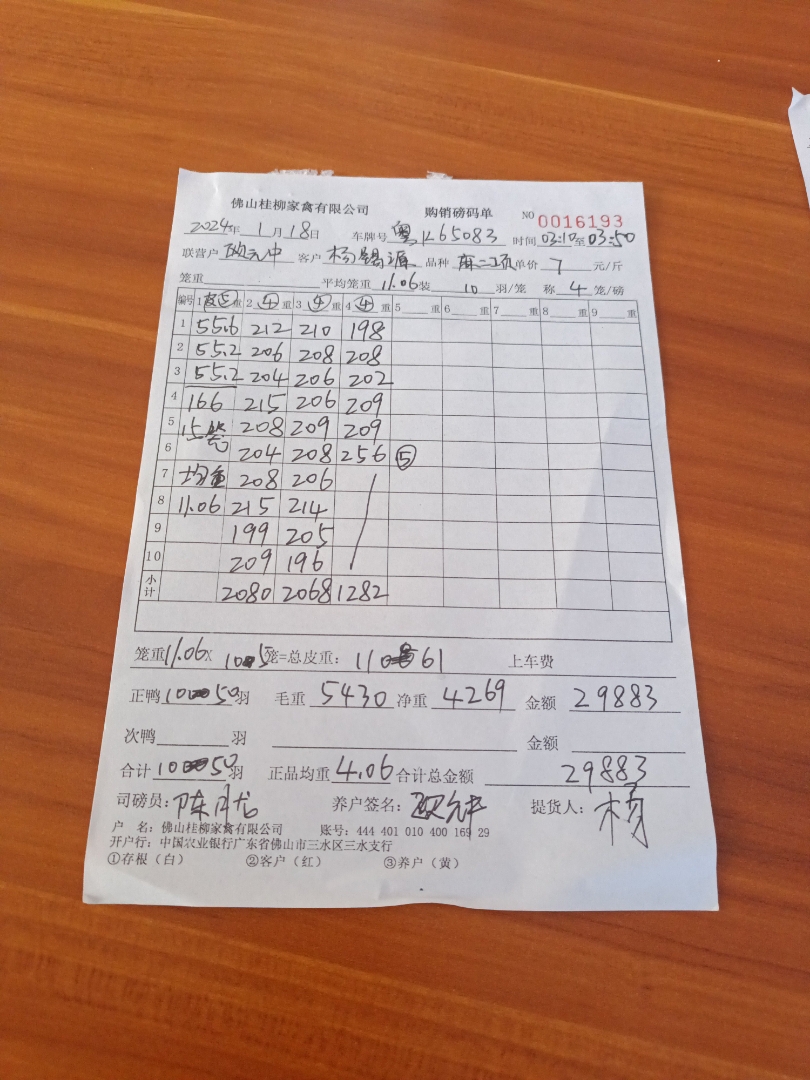 佛山桂柳家禽有限公司 购销磅码单 NO 0016193
2024年 1月18日 车牌号 粤K65083 时间 03:10至03:50
联营户 欧元中 客户 杨锡源 品种 麻二项 单价 7 元/斤
笼重 平均笼重 11.06 装 10 羽/笼 称 4 笼/磅
编号 1 皮⑤ 重 2 ④ 重 3 ④ 重 4 ④ 重 5 重 6 重 7 重 8 重 9 重
1 55.6 212 210 198
2 55.2 206 208 208
3 55.2 204 206 202
4 166 215 206 209
5 15笼 208 209 209
6 204 208 256 ⑤
7 均重 208 206
8 11.06 215 214
9 199 205
10 209 196
小计 2080 2068 1282
笼重 11.06 × 105 笼=总皮重: 1161 上车费
正鸭 1050 羽 毛重 5430 净重 4269 金额 29883
次鸭 羽 金额
合计 1050 羽 正品均重 4.06 合计总金额 29883
司磅员: 陈 养户签名: 欧元中 提货人: 杨
户 名: 佛山桂柳家禽有限公司 账号: 444 401 010 400 169 29
开户行: 中国农业银行广东省佛山市三水区三水支行
①存根（白） ②客户（红） ③养户（黄）